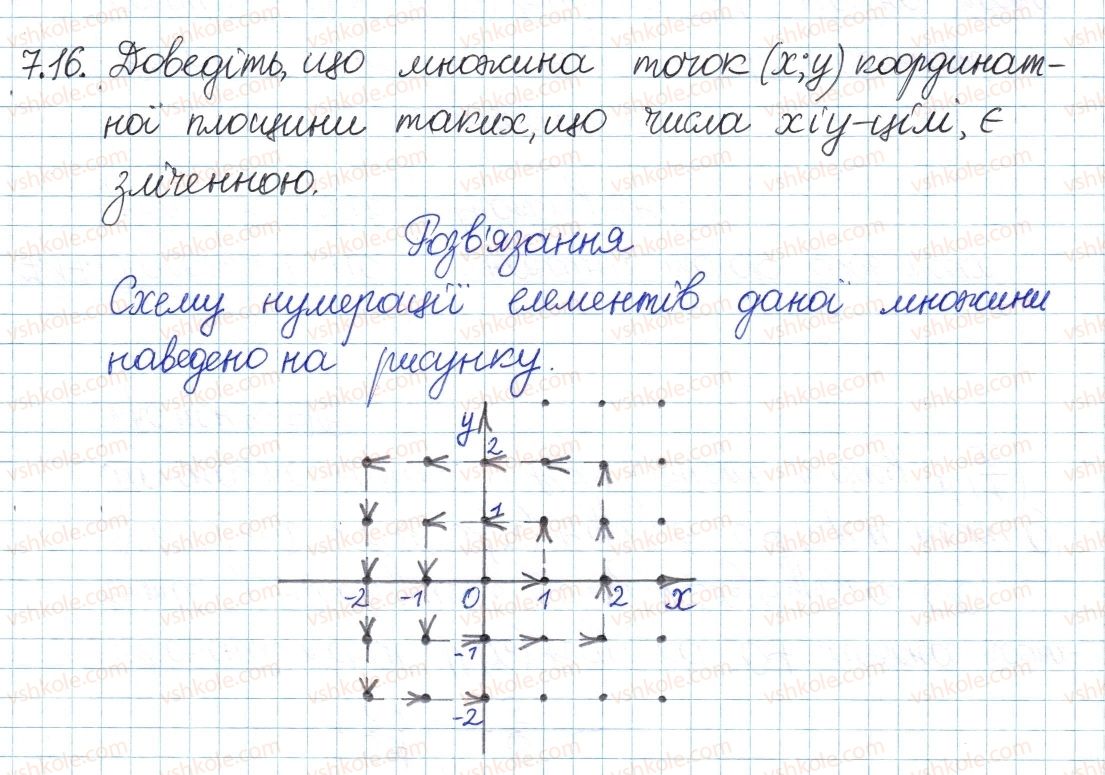 7.16. Доведіть, що множина точок (x;y) координат-
ної площини таких, що числа x і y - цілі, є
зліченною.
Розв'язання
Схему нумерації елементів даної множини
наведено на рисунку.
y
2
1
-2 -1 0 1 2 x
-1
-2
vshkole.com